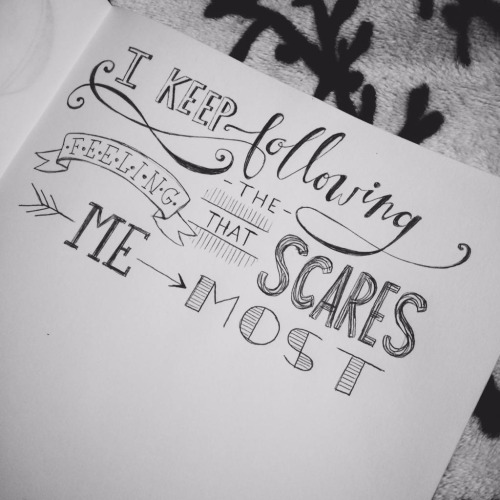 I KEEP following
-THE-
·F·E·E·L·I·N·G·
THAT
SCARES
ME
MOST